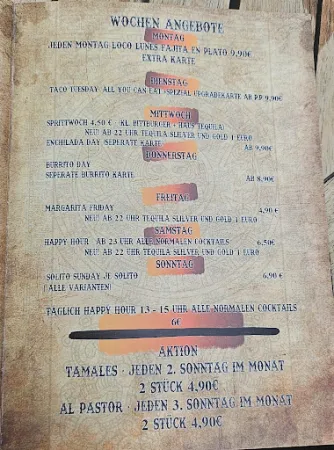 WOCHEN ANGEBOTE
MONTAG
JEDEN MONTAG LOCO LUNES FAJITA EN PLATO 9,90€
EXTRA KARTE
DIENSTAG
TACO TUESDAY ALL YOU CAN EAT SPEZIAL UPGRADEKARTE AB P.P 9,90€
MITTWOCH
SPRITTWOCH 4,50 € KL. BITBURGER + HAUS TEQUILA
NEU AB 22 UHR TEQUILA SLILVER UND GOLD 1 EURO
ENCHILADA DAY SEPERATE KARTE AB 9,90€
DONNERSTAG
BURRITO DAY
SEPERATE BURRITO KARTE AB 8,90€
FREITAG
MARGARITA FRIDAY 4,90 €
NEU AB 22 UHR TEQUILA SLILVER UND GOLD 1 EURO
SAMSTAG
HAPPY HOUR AB 23 UHR ALLE NORMALEN COCKTAILS 6,50€
NEU AB 22 UHR TEQUILA SLILVER UND GOLD 1 EURO
SONNTAG
SOLITO SUNDAY JE SOLITO 6,90 €
(ALLE VARIANTEN)
TÄGLICH HAPPY HOUR 13 - 15 UHR ALLE NORMALEN COCKTAILS
6€
AKTION
TAMALES - JEDEN 2. SONNTAG IM MONAT
2 STÜCK 4,90€
AL PASTOR - JEDEN 3. SONNTAG IM MONAT
2 STÜCK 4,90€